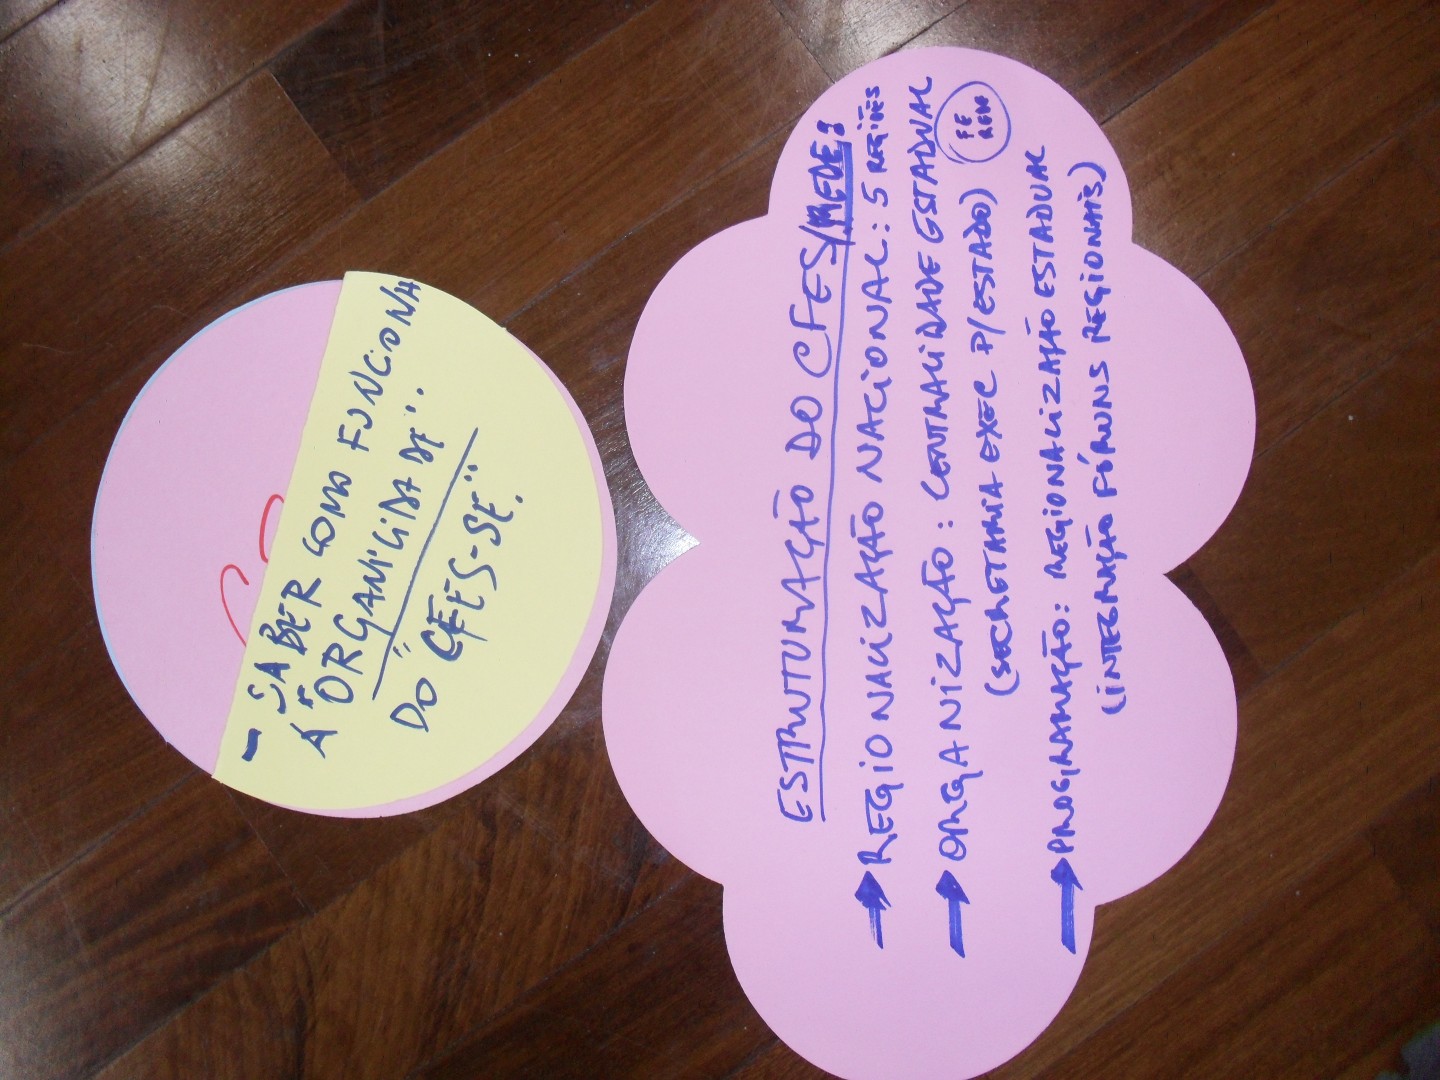 - SABER COMO FUNCIONA
A "ORGANICIDADE"
DO "CFES-SE".
ESTRUTURAÇÃO DO CFES/REDE:
→ REGIONALIZAÇÃO NACIONAL: 5 REGIÕES
→ ORGANIZAÇÃO: CENTRALIDADE ESTADUAL
(SECRETARIA EXEC P/ESTADO)
→ PROGRAMAÇÃO: REGIONALIZAÇÃO ESTADUAL
(INTEGRAÇÃO FÓRUNS REGIONAIS)